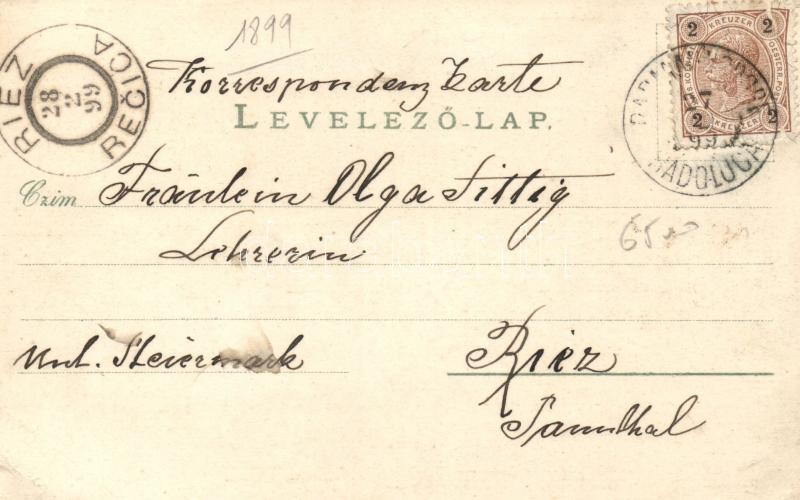 1899
RIEZ
REČICA
28
2
99
2 KREUZER 2
2 KREUZER 2
RADOLUCA
Korrespondenz Karte
LEVELEZŐ-LAP.
Czim Fräulein Olga Sittig
Lehrerin
65
Unt. Steiermark
Riez
Sannthal